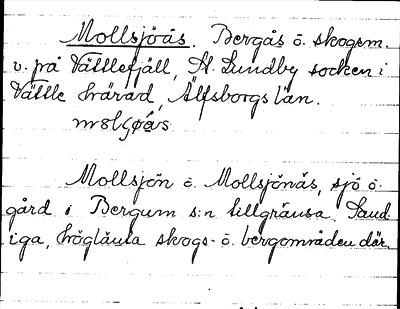 Mollsjöås. Bergås ö. skogsm.
v. på Vättlefjäll, St. Lundby socken i
Vättle härad, Älfsborgs län.
Mollsjön ö. Mollsjönäs, sjö ö.
gård i Bergum s:n tillgränsa. Sand-
iga, höglänta skogs- ö. bergområden där.